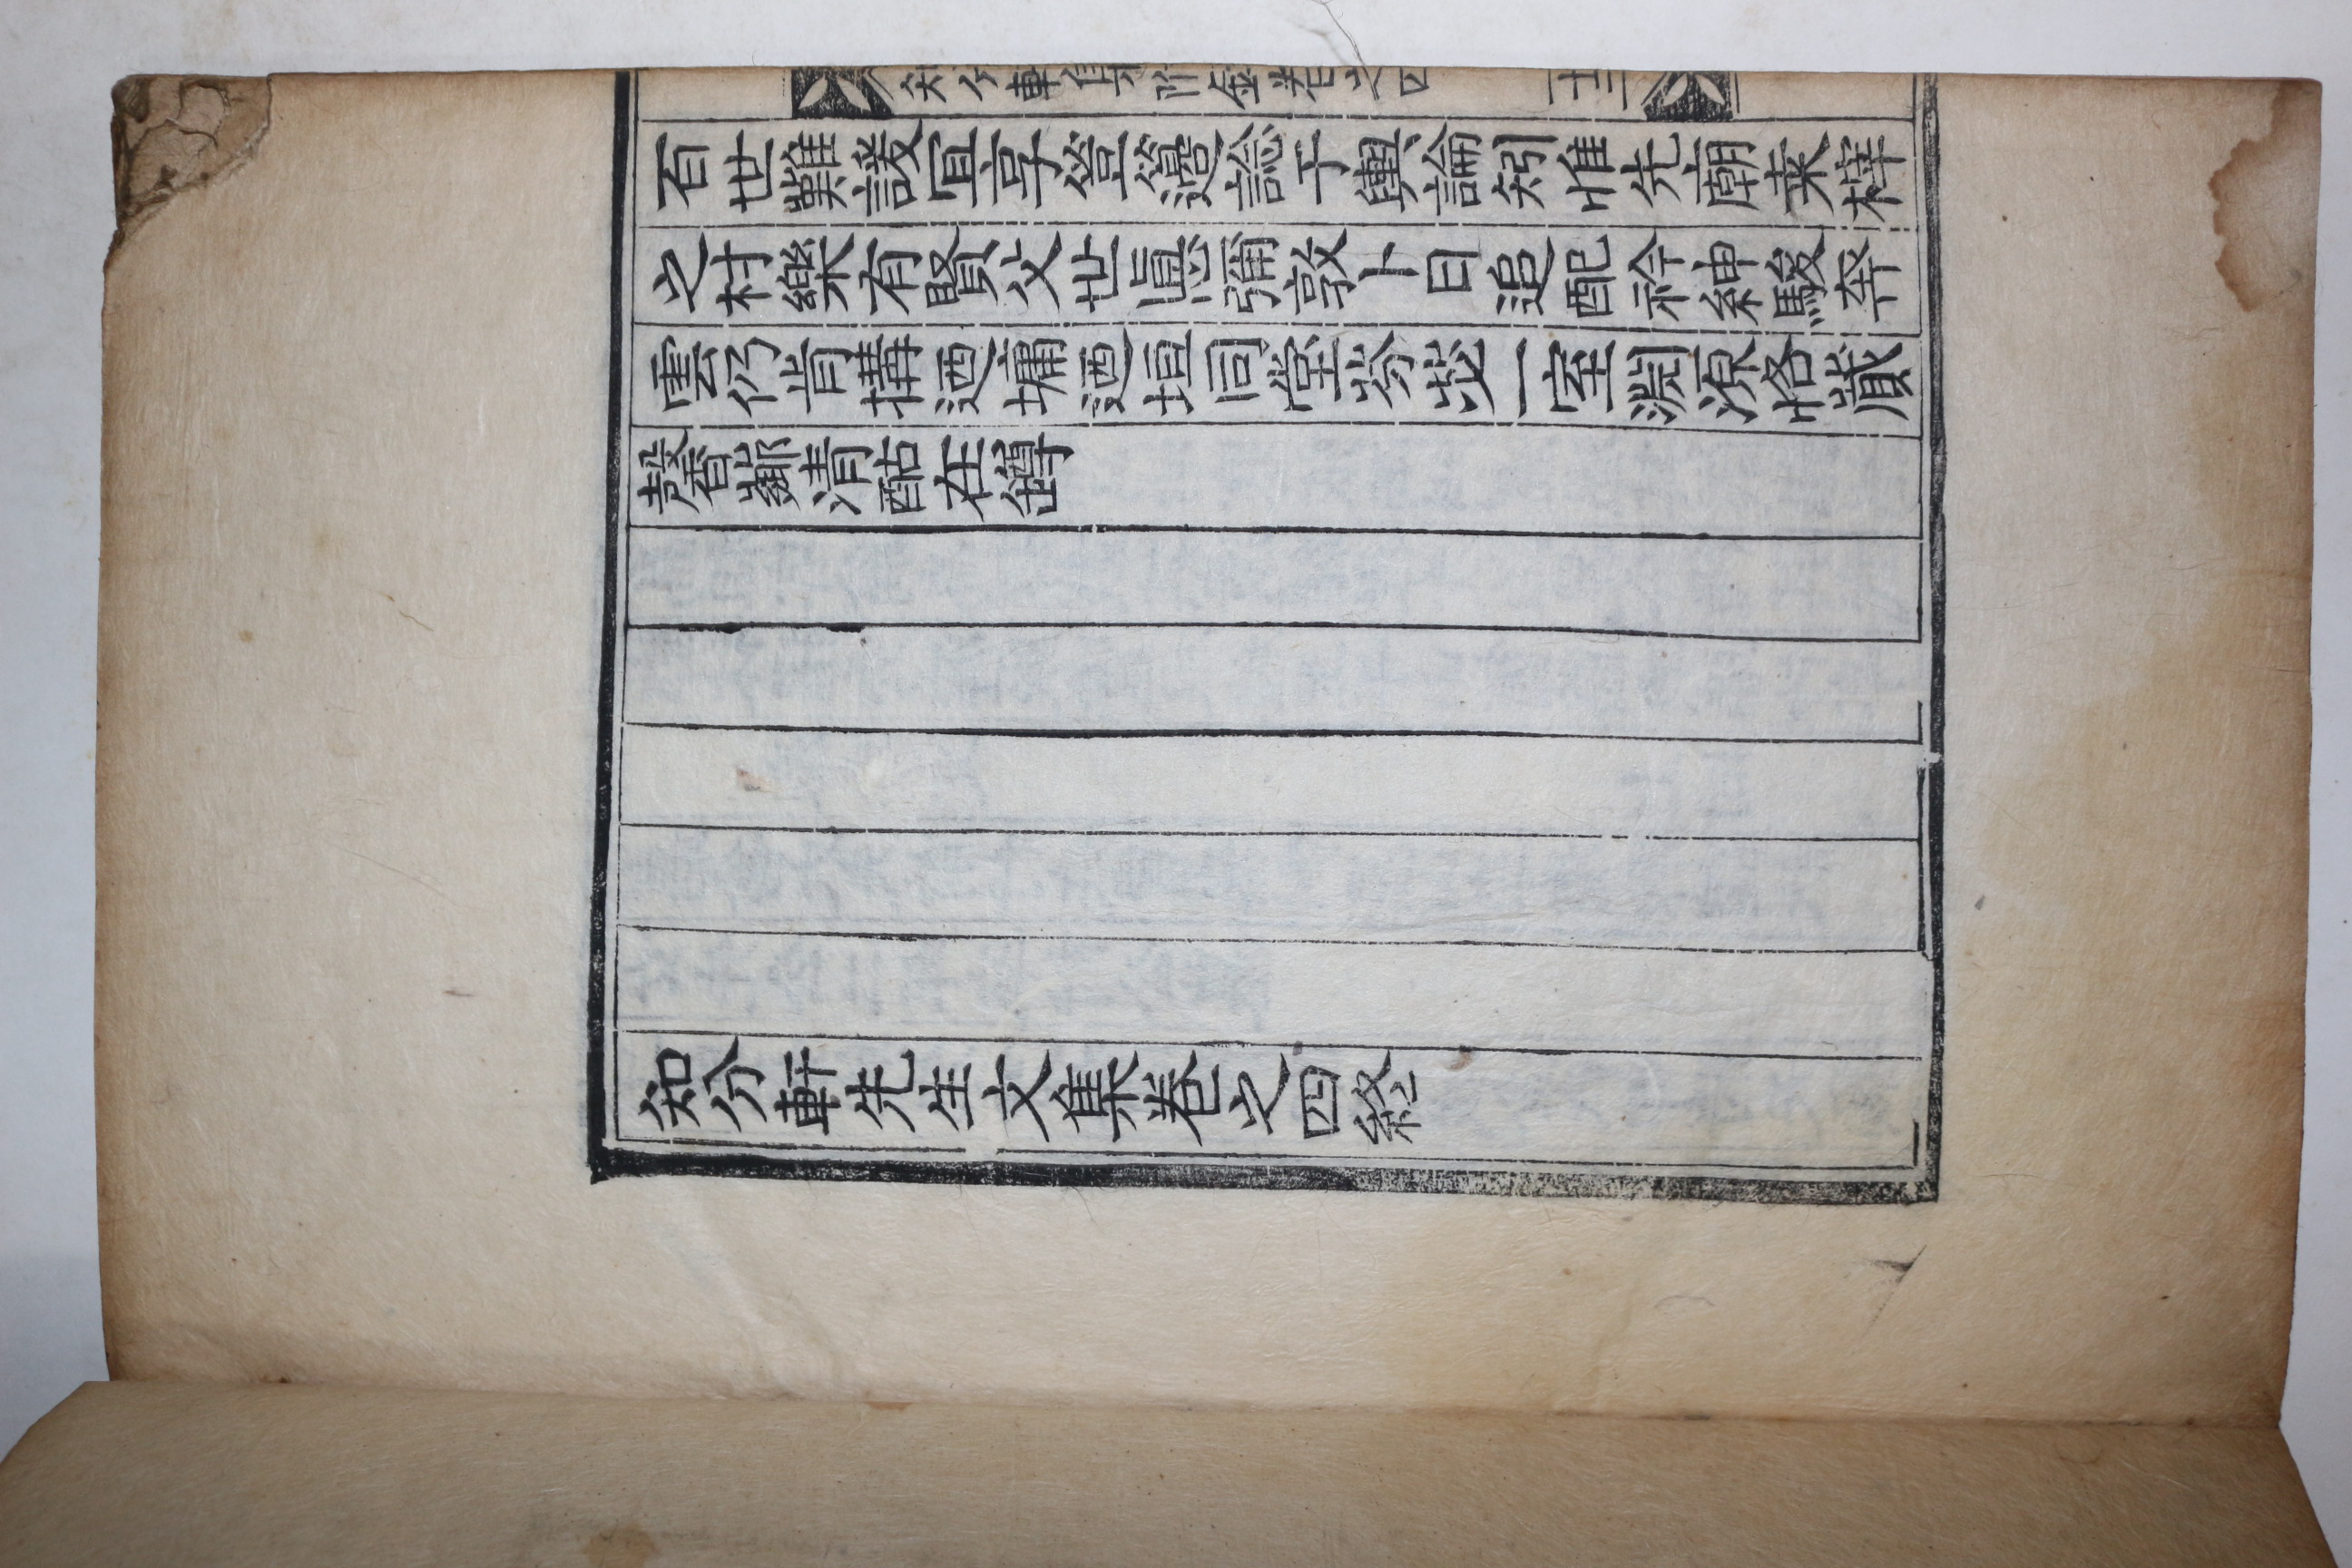 知分軒集附錄卷之四 十三
百世難諼冝享䇺籩諗于輿論矧惟先廟桒梓
之村樂有賢父世慝彌敦卜日追配衿紳駿奔
雲仍肯搆迺墉迺垣同堂芬苾一室淵源恪蕆
馨薌清酤在罇
知分軒先生文集卷之四終